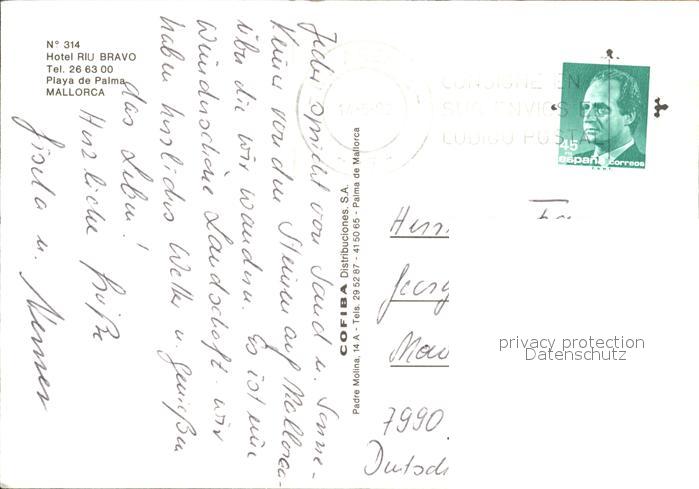 N° 314
Hotel RIU BRAVO
Tel. 26 63 00
Playa de Palma
MALLORCA
Jeder spricht von Sand u. Sonne -
Keiner von den Steinen auf Mallorca -
über die wir wandern. Es ist eine
wunderschöne Landschaft - wir
haben herrliches Wetter u. genießen
das Leben!
Herzliche Grüße
Gisela u. Werner
COFIBA Distribuciones, S.A.
Padre Molina, 14 A - Tels. 29 52 87 - 41 50 65 - Palma de Mallorca
CONSIGNE EN
SUS ENVIOS EL
CODIGO POSTAL
45
españa correos
Herrn
Georg
7990
Deutsch
privacy protection
Datenschutz